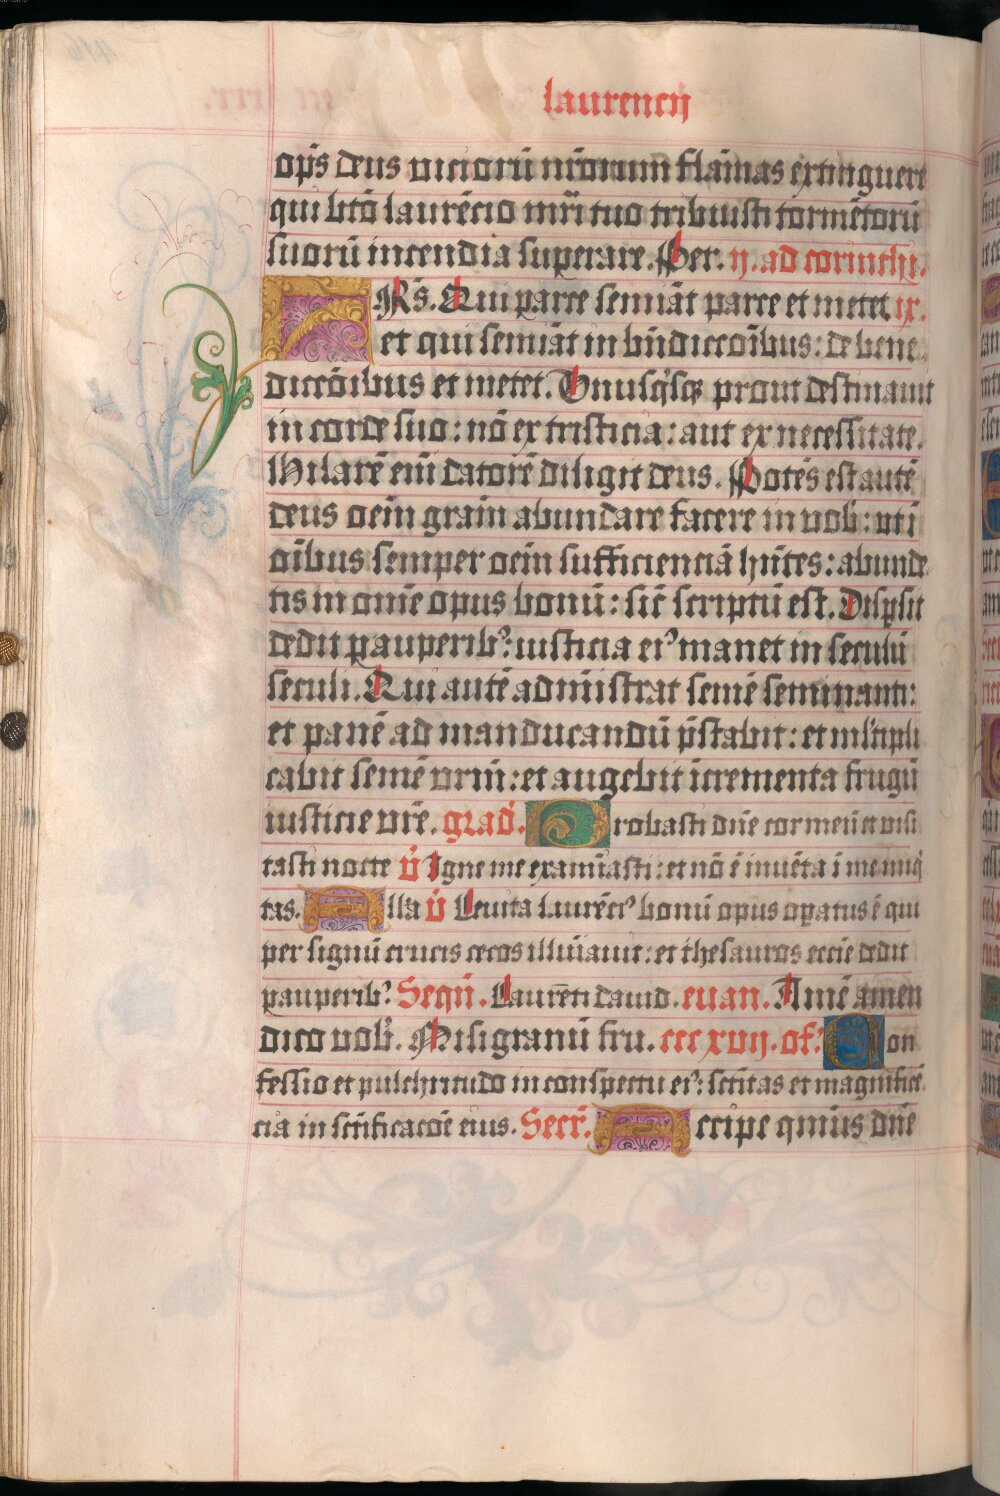 laurencij
op̄s deus uiciorū nr̄orum flam̄as extinguere
qui bt̄o laurēcio mr̄i tuo tribuisti tormētorū
suorū incendia superare. Per. ij. ad corinthi.
FRs̄. Qui parce semīāt parce et metet ix.
et qui semīāt in bn̄diccōībus: de bene
diccōībus et metet. Vnusq̄sq; prout destinauit
in corde suo: nō ex tristicia: aut ex necessitate.
Hilarē eni͞ datorē diligit deus. Potēs est autē
deus oēm gr̄am abundare facere in uob̄: ut ī
oībus semper oēm sufficienciā hn̄tes: abunde
tis in om̄e opus bonū: sic̄ scriptū est. Disp̄sit
dedit pauperibꝰ: iusticia eiꝰ manet in seculū
seculi. Qui autē admīistrat semē seminanti:
et panē ad manducandū p̄stabit: et ml̄tipli
cabit semē ur̄m: et augebit īcrementa frugū
iusticie ur̄e. grad̄. Probasti dn̄e cor meū et uisi
tasti nocte v̄ Igne me examīasti: et nō ē inuēta ī me iniq̄
tas. Alla v̄ Leuita laurēciꝰ bonū opus op̄atus ē qui
per signū crucis cecos illuīauit: et thesauros eccīe dedit
pauperibꝰ Seqn̄. Laurēti dauid. euan. Amē amen
dico uob̄. Nisi granū fru. ccc xvij. of: Con
fessio et pulchritudo in conspectu eiꝰ: sc̄titas et magnificē
cia in sc̄tificacōe eius. Secr̄. Accipe qm̄us dn̄e